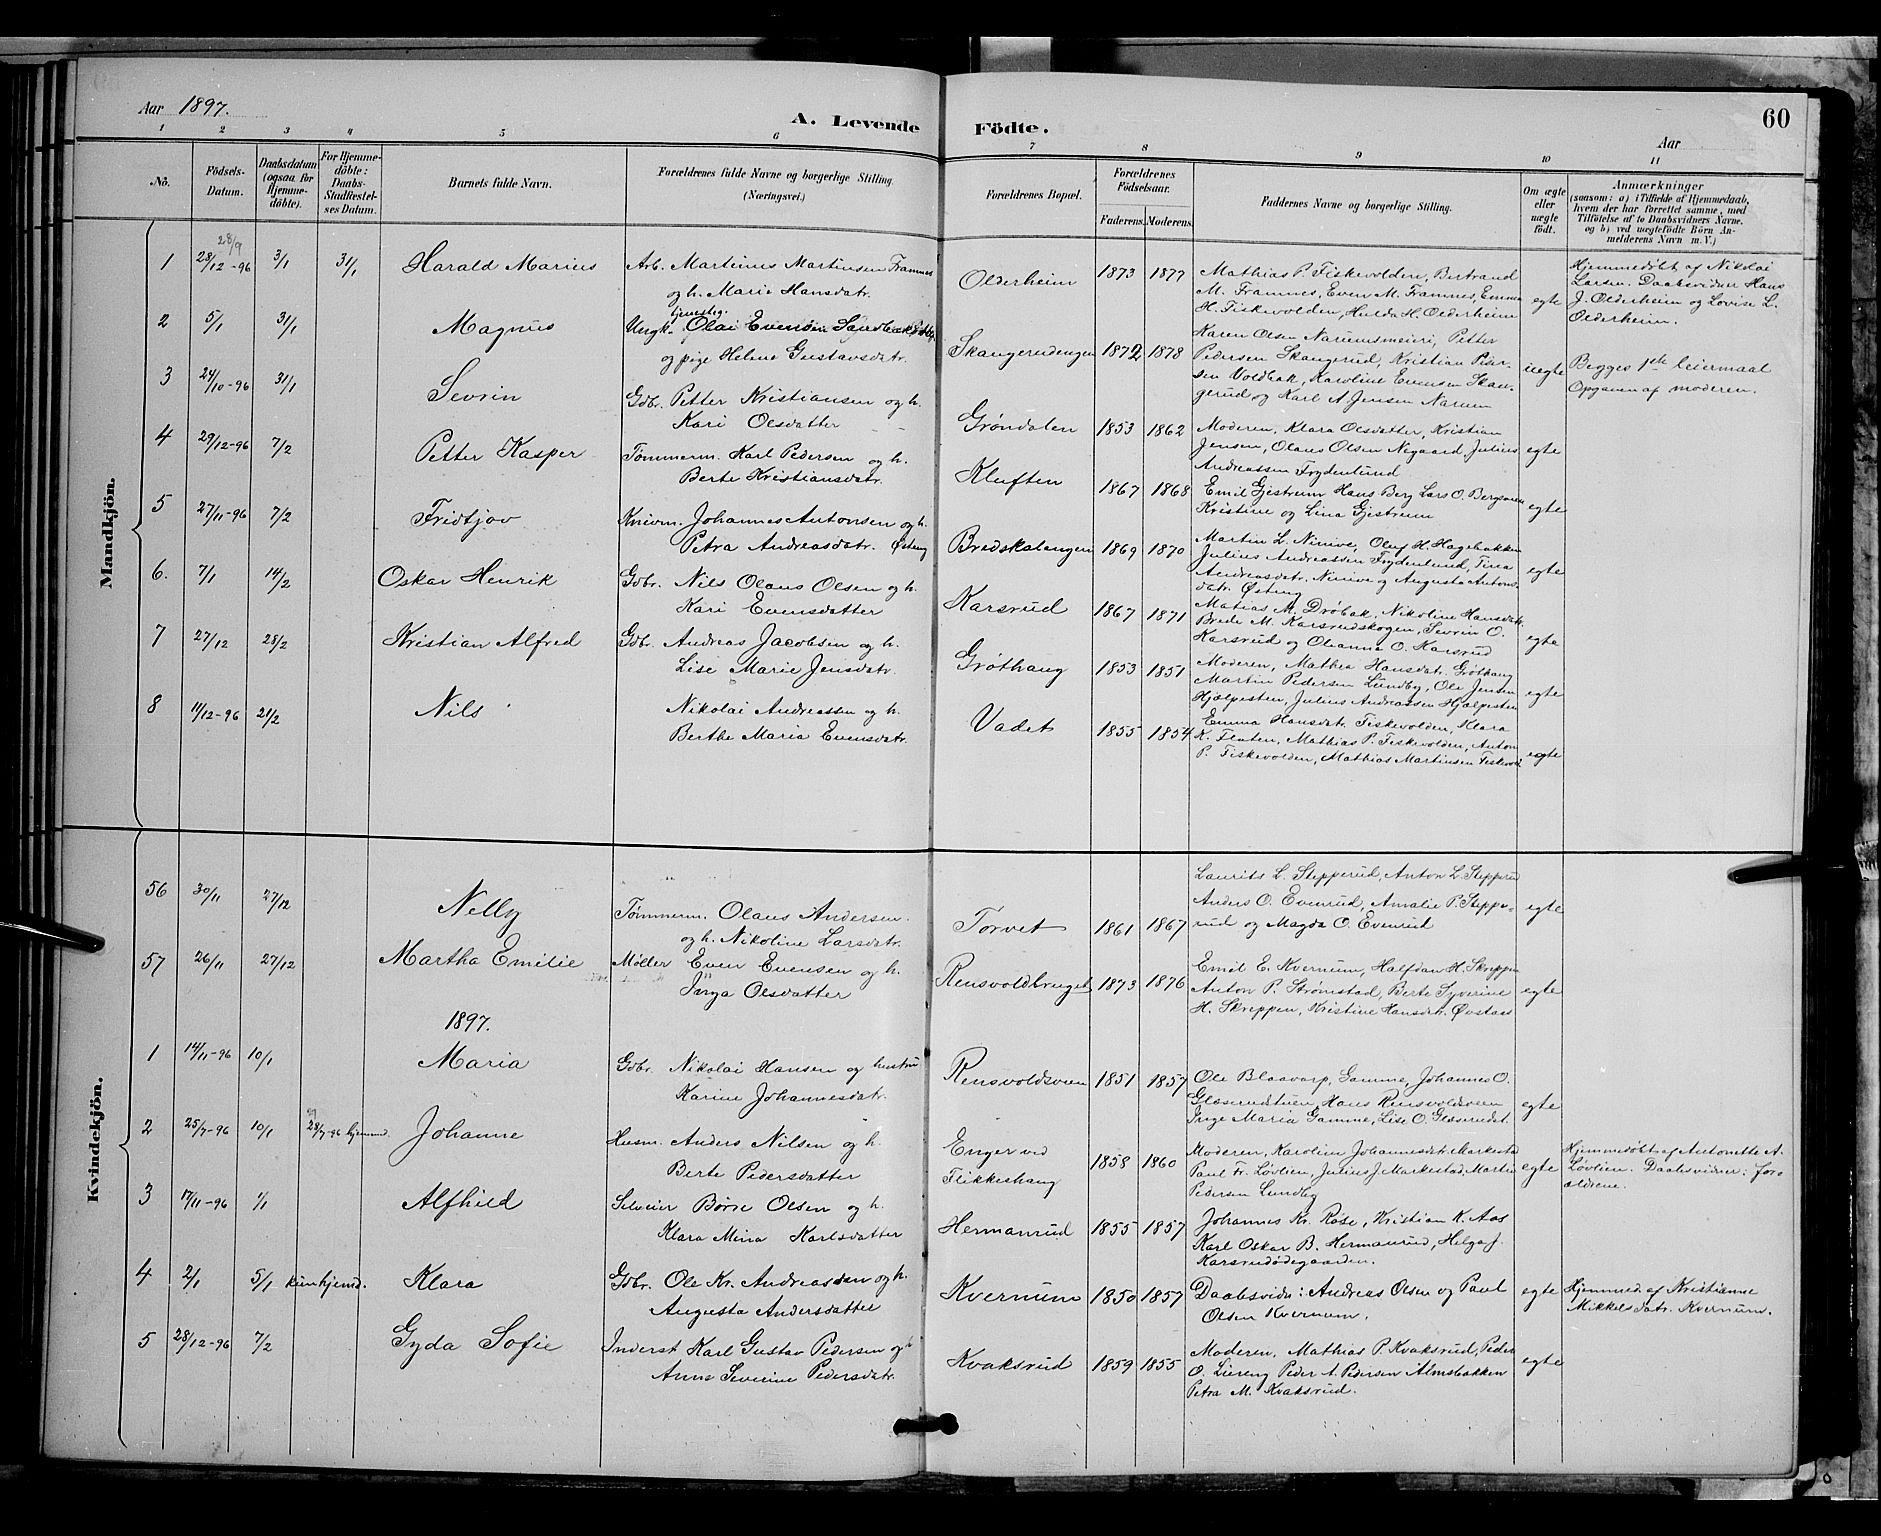 Aar 1897.
A. Levende Födte.
60
Aar
1 2 3 4 5 6 7 8 9 10 11
No.
Födsels-Datum.
Daabsdatum (ogsaa for Hjemme-döbte).
For Hjemme-döbte: Daabs-Stadfestel-ses Datum.
Barnets fulde Navn.
Forældrenes fulde Navne og borgerlige Stilling (Næringsvei.)
Forældrenes Bopæl.
Forældrenes Födselsaar.
Faderens. Moderens.
Faddernes Navne og borgerlige Stilling.
Om ægte eller uægte födt.
Anmærkninger
(saasom: a) i Tilfælde af Hjemmedaab, hvem der har forrettet samme, med Tilföielse af to Daabsvidners Navne. og b) ved uægtefödte Börn An-melderens Navn m. V.)
Mandkjön.
28/9
1 28/12-96 3/1 31/1 Harald Marius
Arb. Martinus Martinsen Framnes
og h. Marie Hansdatr.
Olderheim 1873 1877
Mathias P. Fiskevolden, Bertrand
M. Framnes, Even M. Framnes, Emma
H. Fiskevolden, Hulda H. Olderheim
egte
Hjemmedøbt af Nikolai
Larsen. Daabsvidner Hans
J. Olderheim og Lovise L.
Olderheim.
2 5/1 31/1 Magnus
Ungk. Olai Evensen
og pige Helene Gustavsdatr.
Skangerudengen 1872 1878
Karen Olsen Narumsmeieri, Petter
Pedersen Skangerud, Kristian Peder-
sen Voldbak, Karoline Evensen Skan-
gerud og Karl A. Jensen Narum
uegte
Begges 1ste leiermaal
Opgaven af moderen.
3 24/10-96 31/1 Sevrin
Gdbr. Petter Kristiansen og h.
Kari Olsdatter
Grøndalen 1853 1862
Moderen, Klara Olsdatter, Kristian
Jensen, Olaus Olsen Nygaard, Julius
Andreassen Frydenlund
egte
4 29/12-96 7/2 Petter Kasper
Tømmerm. Karl Pedersen og h.
Berte Kristiansdatr.
Kluften 1867 1868
Emil Gjestrum Hans Berg Lars O. Bergsveen
Kristine og Lina Gjestrum
egte
5 27/11-96 7/2 Fridtjov
Knivm. Johannes Antonsen og h.
Petra Andreasdatr. Østeng
Bredskalengen 1869 1870
Martin L. Ninive, Oluf H. Hagebakken
Julius Andreassen Frydenlund, Tina
Andreasdatr. Ninive og Augusta Antons-
datr. Østeng
egte
6. 7/1 14/2 Oskar Henrik
Gdbr. Nils Olaus Olsen og h.
Kari Evensdatter
Karsrud 1867 1871
Matias M. Drøbak, Nikoline Hansdatr.
Brede M. Karsrudskogen, Sevrin O.
Karsrud og Oleanna O. Karsrud
egte
7 27/12 28/2 Kristian Alfred
Gdbr. Andreas Jacobsen og h.
Lise Marie Jensdatr.
Grøthaug 1853 1851
Moderen, Mathea Hansdat. Grøthaug
Martin Pedersen Lundby, Ole Jensen
Hjælpesten, Julius Andreassen Hjælpesten
egte
8 11/12-96 21/2 Nils
Nikolai Andreassen og h.
Berthe Maria Evensdatr.
Vadet 1855 1854
Emma Hansdatr. Fiskevolden, Klara
K. Fladen, Mathias P. Fiskevolden, Anton
P. Fiskevolden, Mathias Martinsen Fiskevold
egte
Kvindekjön.
56 30/11 27/12 Nelly
Tømmerm. Olaus Andersen
og h. Nikoline Larsdatr.
Torvet 1861 1867
Laurits L. Stepperud, Anton L. Stepperud
Anders O. Evenrud, Amalie P. Steppe-
rud og Magda O. Evenrud
egte
57 26/11 27/12 Martha Emilie
Møller Even Evensen og h.
Inga Olsdatter
Rensvoldbruget 1873 1876
Emil E. Kvernum, Halfdan H. Skreppen
Anton P. Strømstad, Berte Syverine
H. Skreppen, Kristine Hansdatr. Øvstaas
egte
1897.
1 14/11-96 10/1 Maria
Gdbr. Nikolai Hansen og hustru
Karine Johannesdatr.
Rensvoldsveen 1851 1857
Ole Blaavarp, Gamme, Johannes O.
Glæserudtuen, Hans Rensvoldsveen
Inge Maria Gamme, Lise O. Glæserudst.
egte
2 25/7-96 10/1 28/7-96 hjemmd. Johanne
Husm. Anders Nilsen og h.
Berte Pedersdatter
Enger ved
Flikkeshaug
1858 1860
Moderen, Karoline Johannesdatr. Markestad
Paul Fr. Løvlien, Julius J. Markestad, Martin
Pedersen Lundby
egte
Hjemmedøbt af Antonette A.
Løvlien. Daabsvidner: for-
ældrene.
3 17/11-96 1/1 Alfhild
Selveier Børre Olsen og h.
Klara Mina Karlsdatter
Hermanrud 1855 1857
Johannes Kr. Røse, Kristian K. Aas
Karl Oskar B. Hermanrud, Helga J.
Karsrudødegaarden.
4 2/1 5/1 kun hjemd. Klara
Gdbr. Ole Kr. Andreassen og h.
Augusta Andersdatter
Kvernum 1850 1857
Daabsvidn: Andreas Olsen og Paul
Olsen Kvernum.
egte
Hjemmed. af Kristianne
Mikkelsdatr. Kvernum.
5 28/12-96 7/2 Gyda Sofie
Inderst Karl Gustav Pedersen og h
Anne Severine Pedersdatr.
Kvaksrud 1859 1855
Moderen, Mathias P. Kvaksrud, Peder
O. Liereng Peder A. Pedersen Almsbakken
Petra M. Kvaksrud.
egte